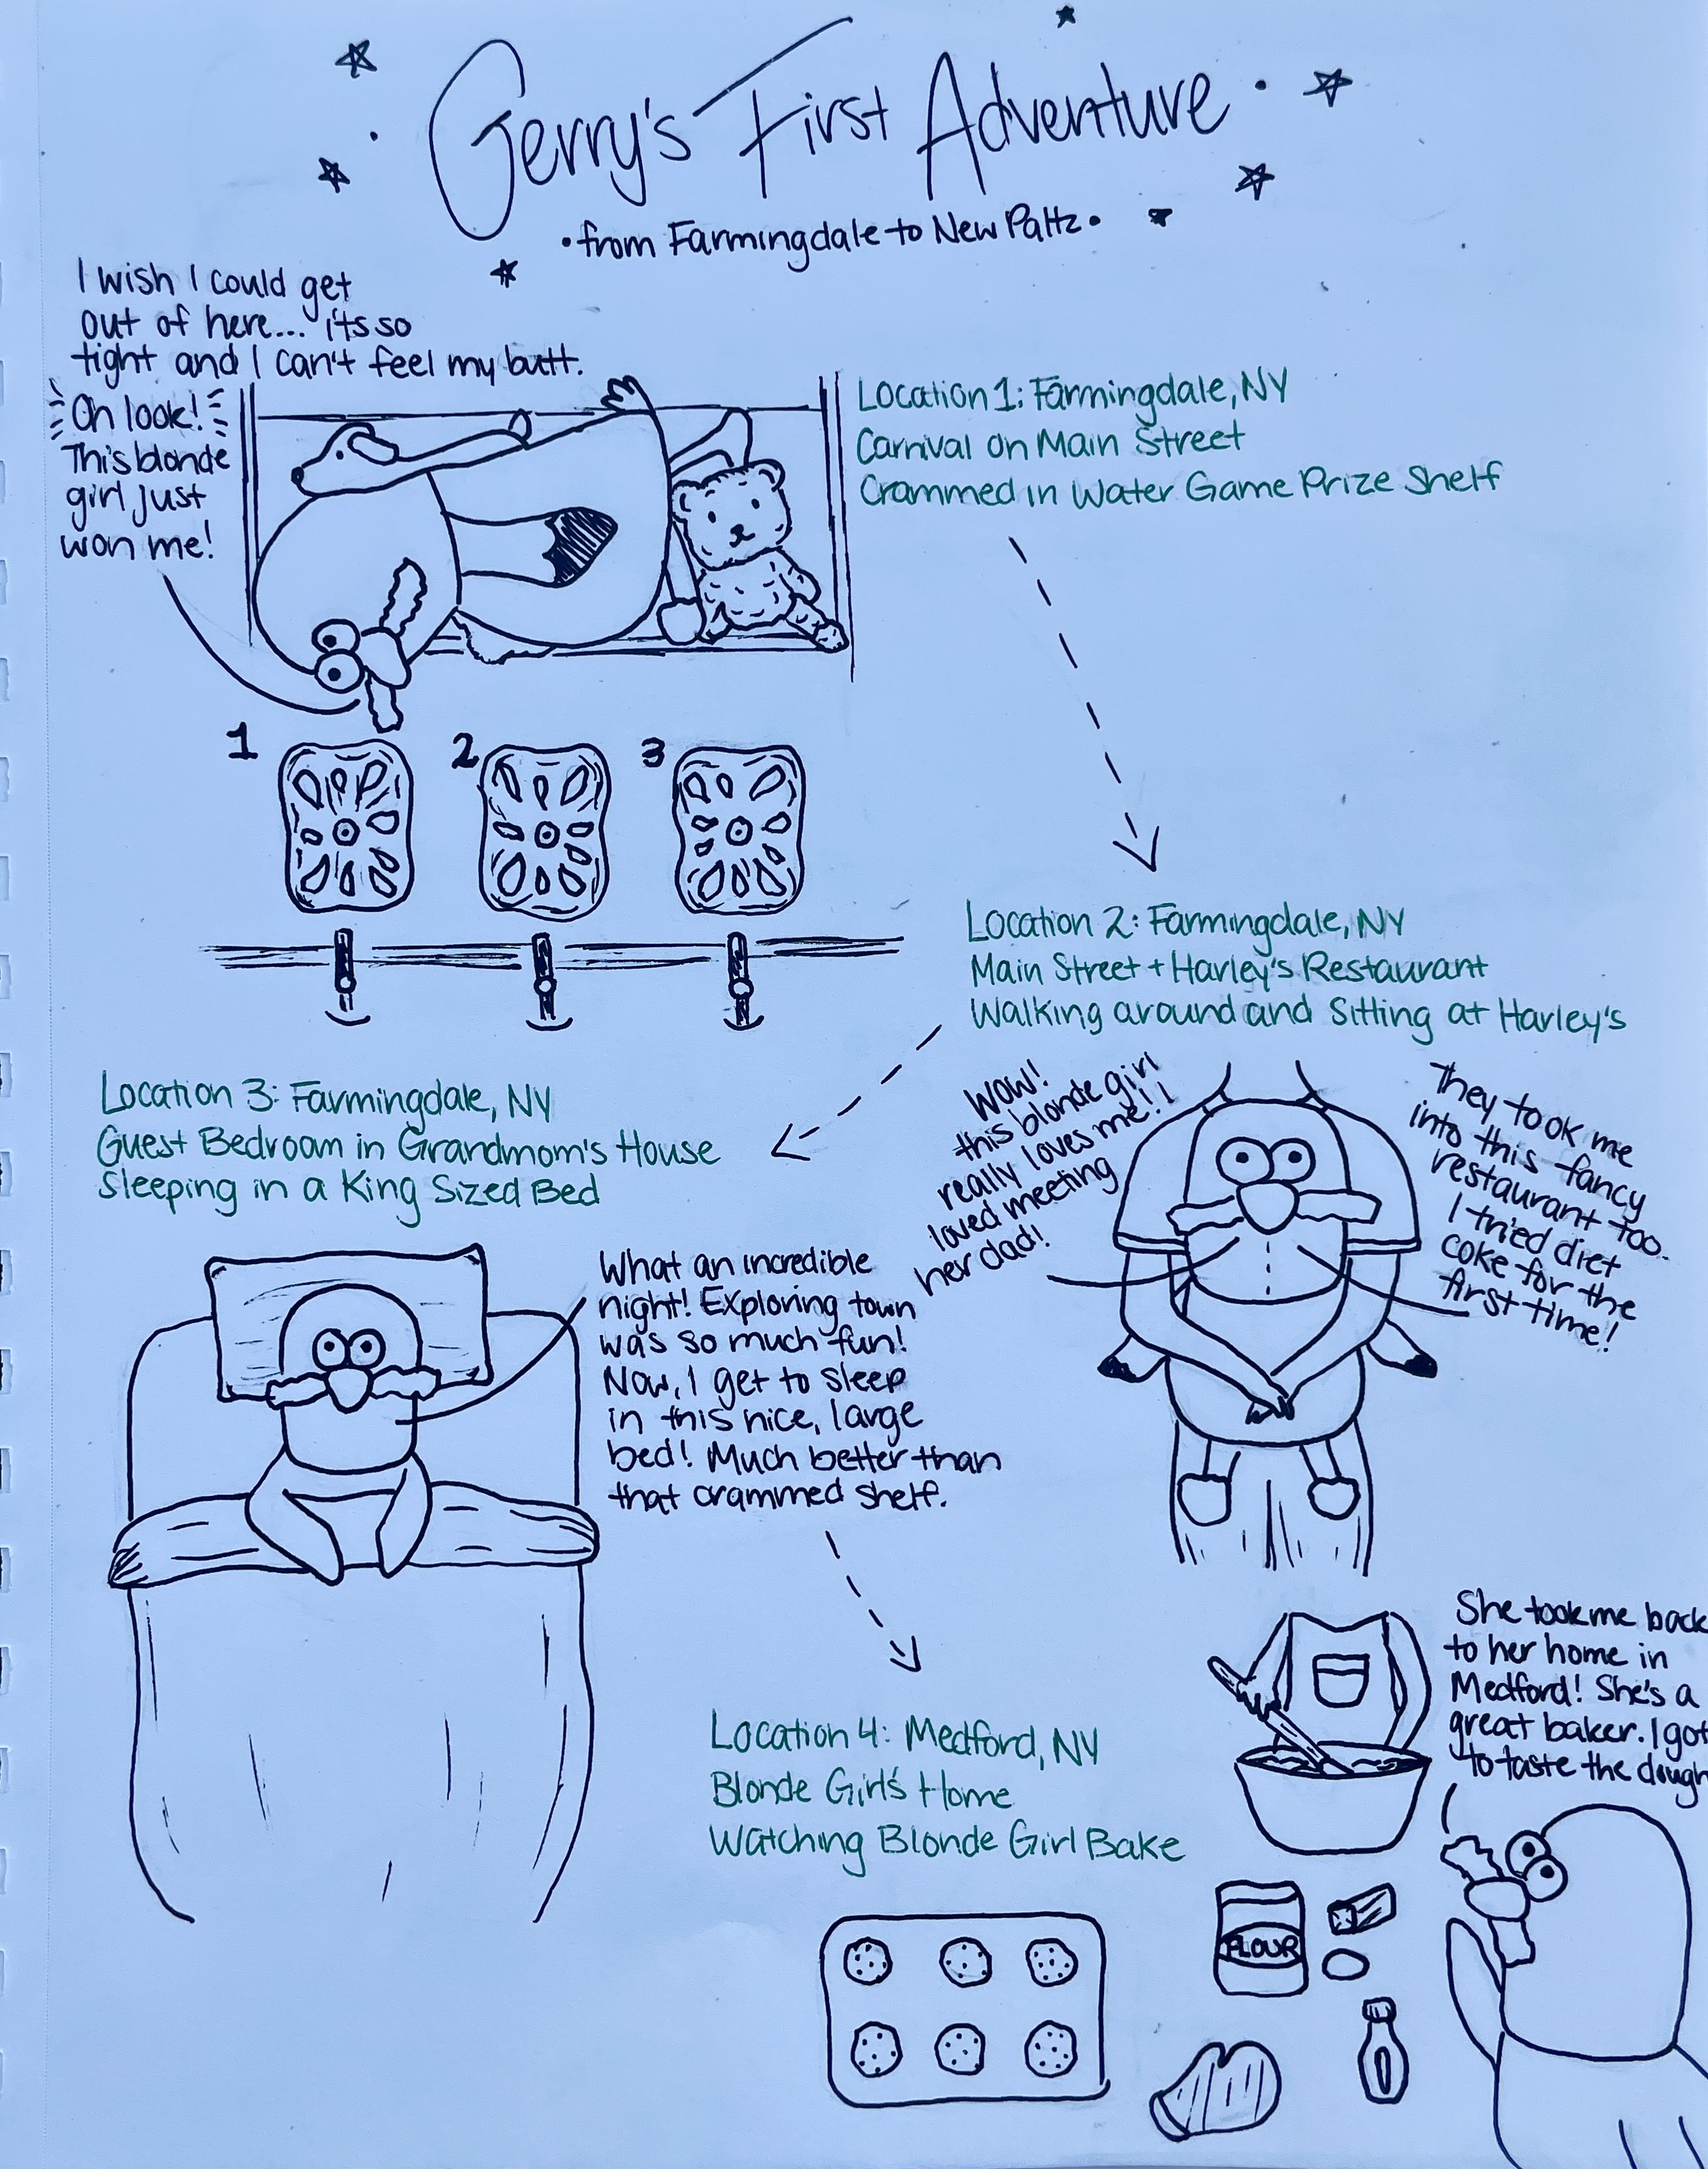 Gerry's First Adventure
•from Farmingdale to New Paltz•
I wish I could get
out of here... it's so
tight and I can't feel my butt.
Oh look!
This blonde
girl just
won me!
Location 1: Farmingdale, NY
Carnival on Main Street
Crammed in Water Game Prize Shelf
1
2
3
Location 2: Farmingdale, NY
Main Street + Harley's Restaurant
Walking around and Sitting at Harley's
Wow!
this blonde girl
really loves me!!
loved meeting
her dad!
They took me
into this fancy
restaurant too.
I tried diet
coke for the
first time!
Location 3: Farmingdale, NY
Guest Bedroom in Grandmom's House
Sleeping in a King Sized Bed
What an incredible
night! Exploring town
was so much fun!
Now, I get to sleep
in this nice, large
bed! Much better than
that crammed shelf.
Location 4: Medford, NY
Blonde Girl's Home
Watching Blonde Girl Bake
She took me back
to her home in
Medford! She's a
great baker. I got
to taste the dough
FLOUR